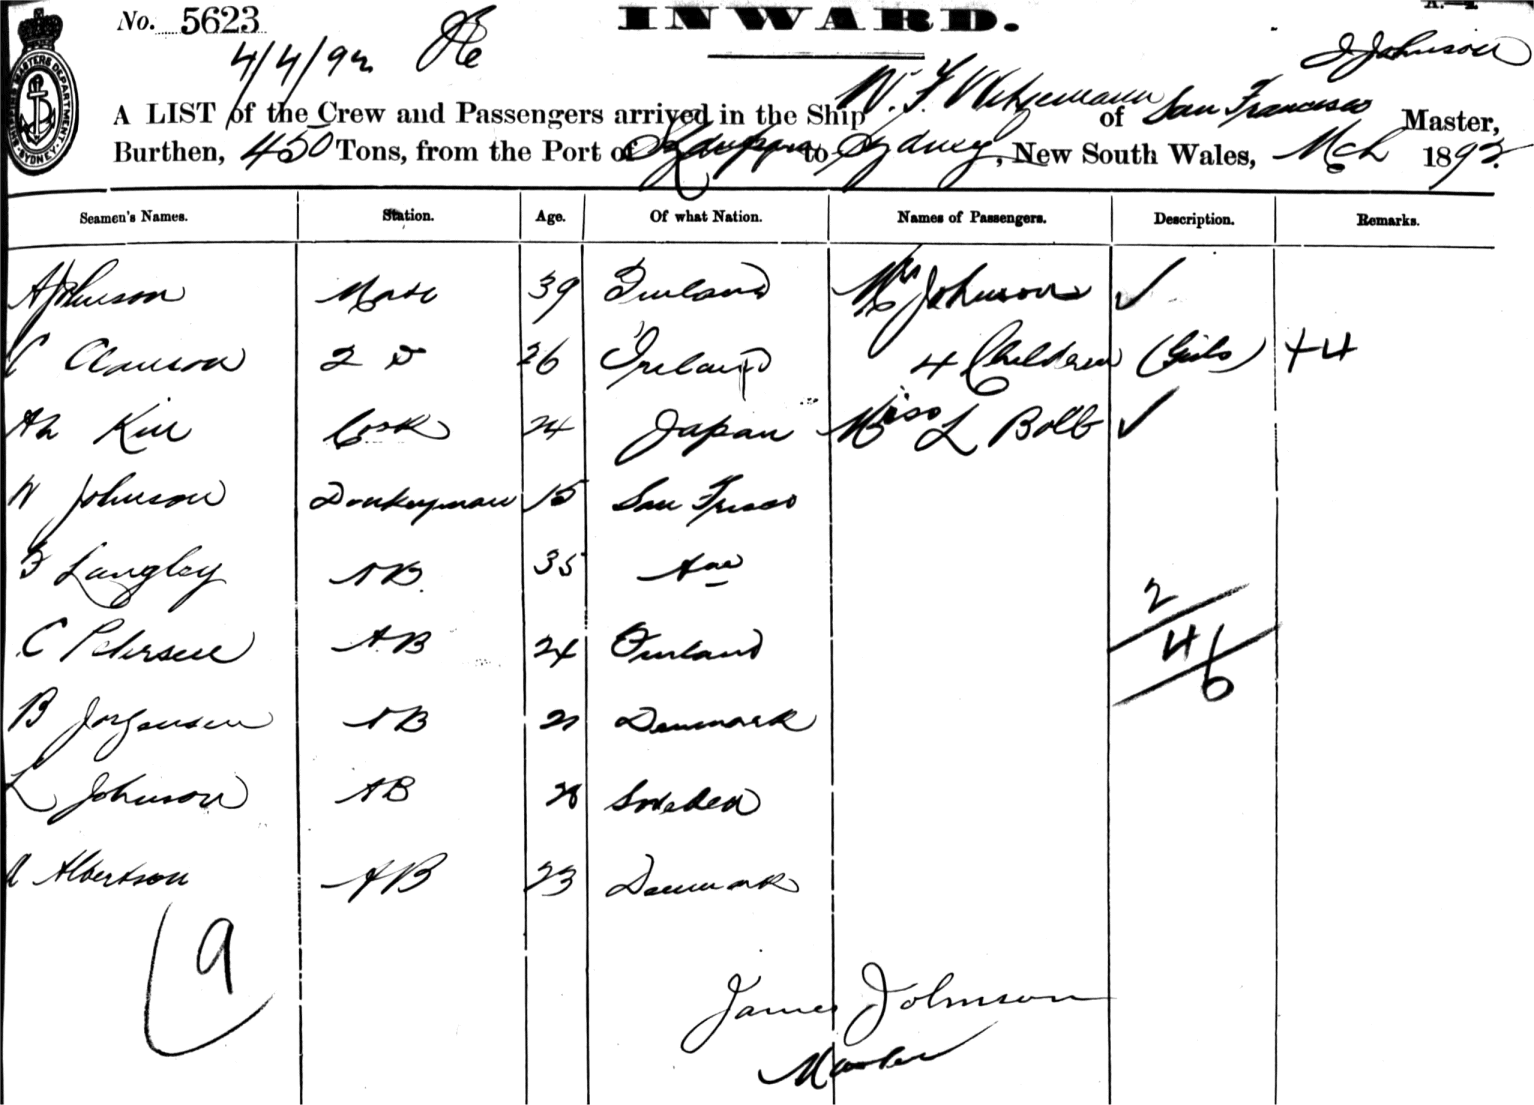 No. 5623
INWARD.
4/4/92
J Johnson
A LIST of the Crew and Passengers arrived in the Ship W. F. Witzemann of San Francisco Master,
Burthen, 450 Tons, from the Port of to Sydney, New South Wales, Mch 1892
SHIPPING MASTERS DEPARTMENT SYDNEY
Seamen's Names. Station. Age. Of what Nation. Names of Passengers. Description. Remarks.
A Johnson Mate 39 Finland Mrs Johnson ✓
C Clauson 2 D 26 Ireland 4 Children (Girls) +4
Ah Kin Cook 24 Japan Miss L Bolb ✓
W Johnson Donkeyman 15 San Frisco
F Langley AB. 35 Ame
C Petersen AB 24 Finland
B Jorgensen AB 21 Denmark
L Johnson AB 28 Sweden
A Albertson AB 23 Denmark
2
4/6
9
James Johnson
Master